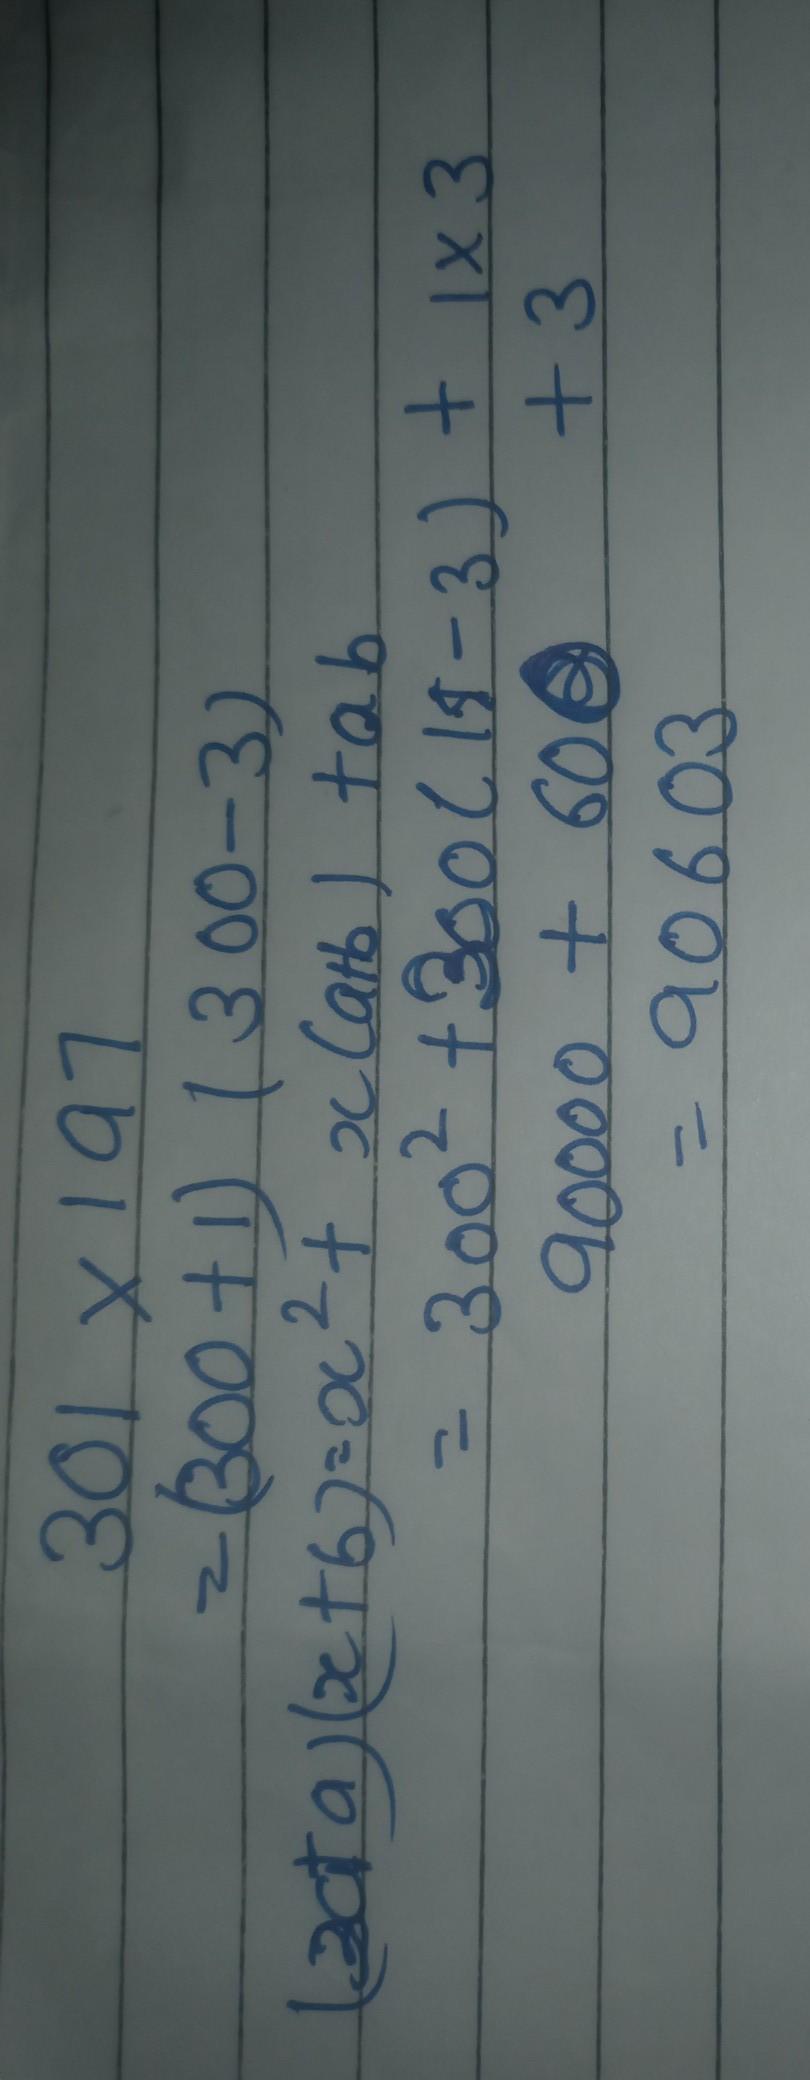 301 × 197
=(300+1) (300-3)
(x+a)(x+b)=x²+ x(a+b) +ab
= 300² +300(1-3) + 1×3
90000 + 600 +3
= 90603